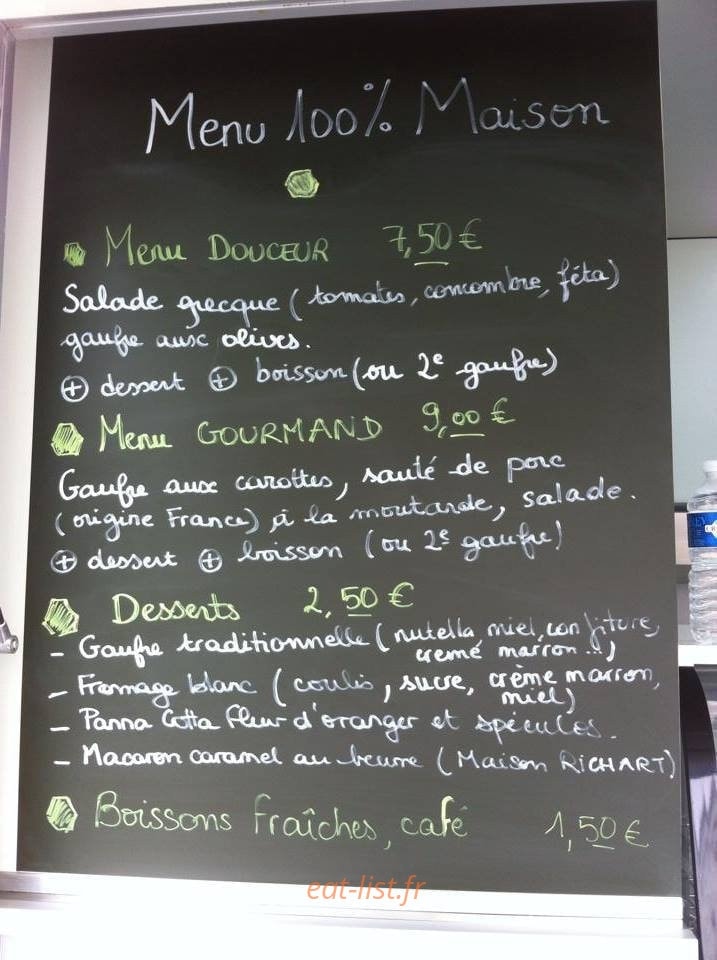 Menu 100% Maison
Menu DOUCEUR 7,50 €
Salade grecque (tomates, concombre, féta)
gaufre aux olives.
+ dessert + boisson (ou 2e gaufre)
Menu GOURMAND 9,00 €
Gaufre aux carottes, sauté de porc
(origine France) à la moutarde, salade.
+ dessert + boisson (ou 2e gaufre)
Desserts 2,50 €
- Gaufre traditionnelle (nutella, miel, confiture,
creme marron...)
- Fromage blanc (coulis, sucre, crème marron,
miel)
- Panna Cotta fleur d'oranger et spéculos.
- Macaron caramel au beurre (Maison RICHART)
Boissons fraîches, café 1,50 €
eat-list.fr